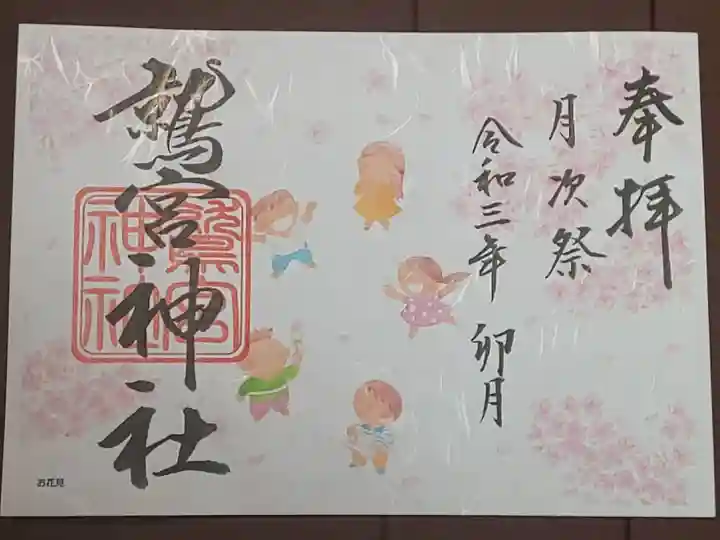 奉拝
月次祭
令和三年 卯月
鷲宮神社
鷲宮
神社
お花見